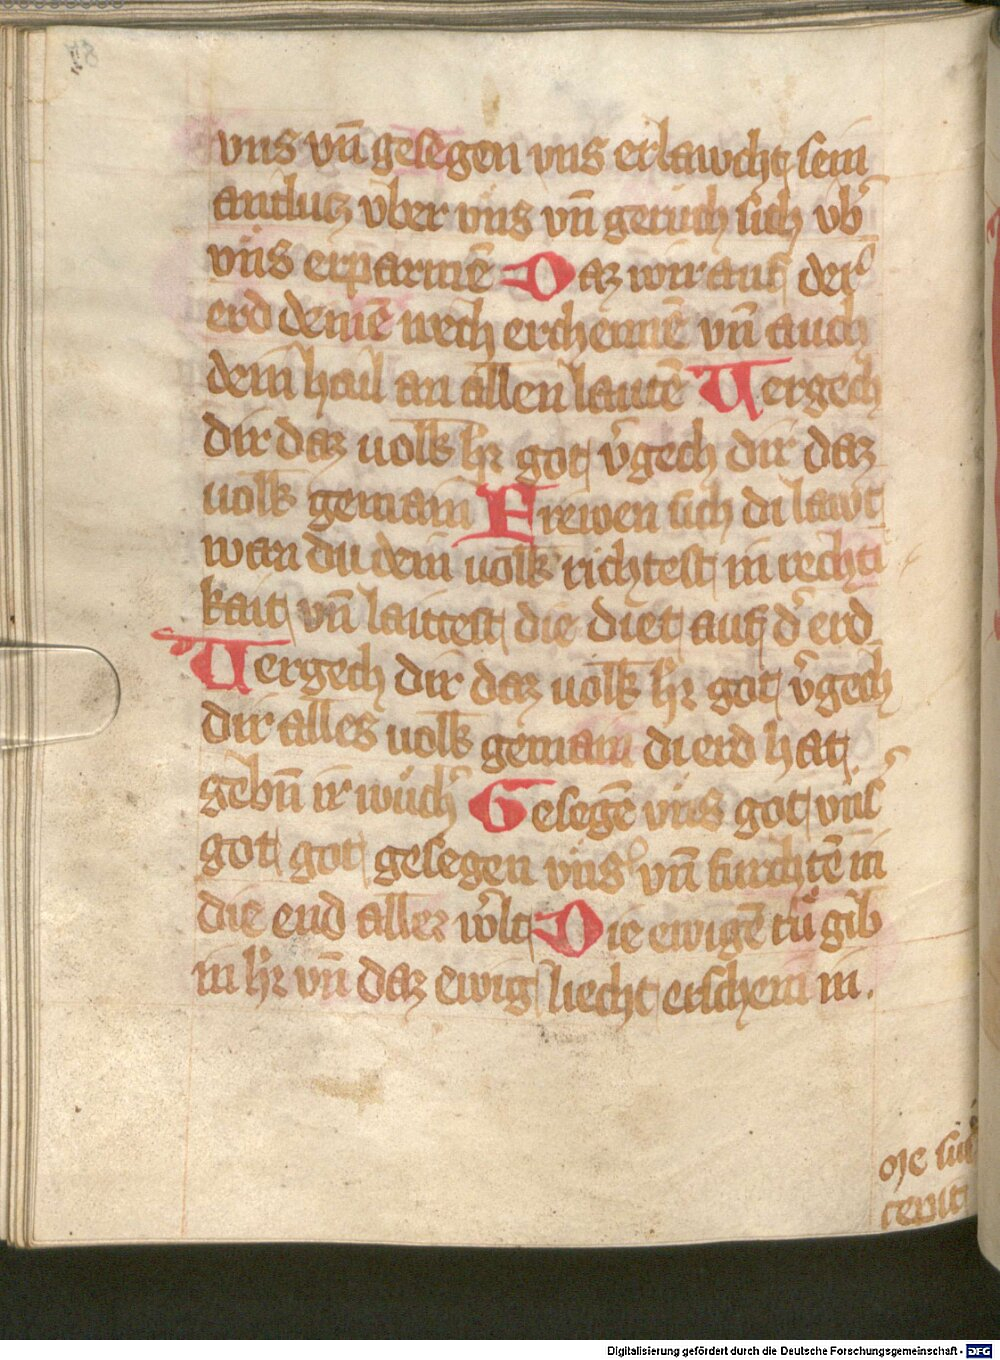 vns vn̄ gesegen vns erlawcht sein
antlutz vber vns vn̄ geruch sich vb̾
vns erparmē Daz wir auf der
erd deinē wech erchennē vn̄ auch
dein hail an allen lautē Uergech
dir daz uolk hr̄ got v̾gech dir daz
uolk gemain Frewen sich di lawt
wan du dein uolk richtest in rechti
kait vn̄ laittest die diet auf d̾ erd
Uergech dir daz uolk hr̄ got v̾gech
dir alles uolk gemain di erd hat
gebn̄ ir wuch̾ Gesegē vns got vns̾
got got gesegen vns vn̄ furchtē in
die end aller w̾lt Die ewigē ru gib
in hr̄ vn̄ daz ewig liecht erschein in.
Digitalisierung gefördert durch die Deutsche Forschungsgemeinschaft - DFG